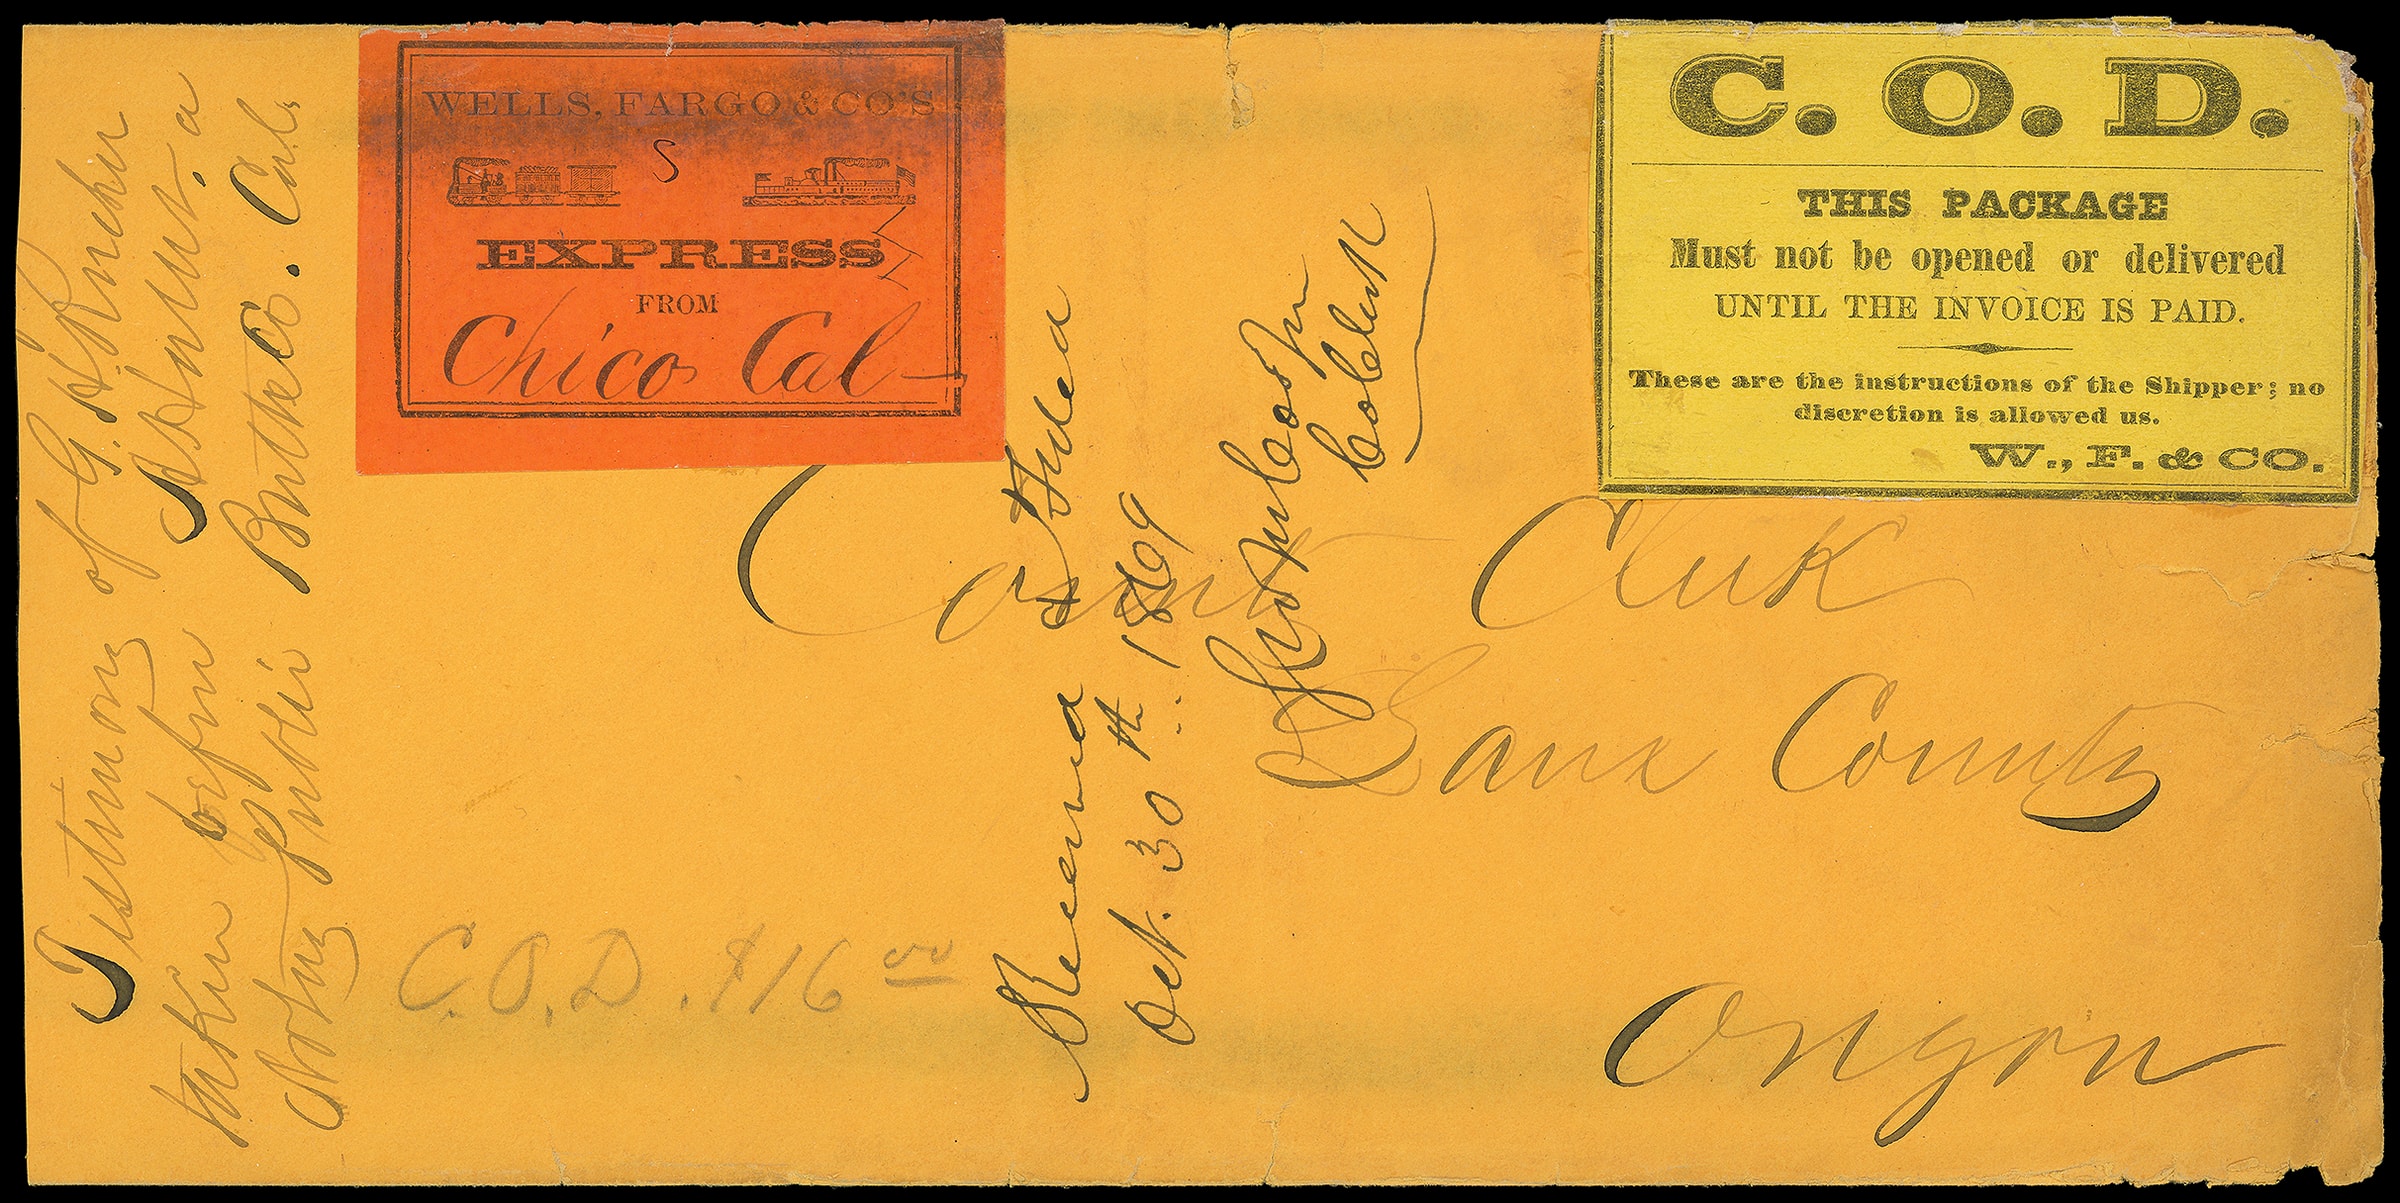 WELLS, FARGO & CO'S
S
EXPRESS
FROM
Chico Cal
C. O. D.
THIS PACKAGE
Must not be opened or delivered
UNTIL THE INVOICE IS PAID.
These are the instructions of the Shipper; no
discretion is allowed us.
W., F. & CO.
Clerk
Lane County
Oregon
C.O.D. $16 00
Testimony of G.
taken before a
Notary Public Butte Co. Cal.
Received & Filed
Oct. 30th 1869
Co Clerk